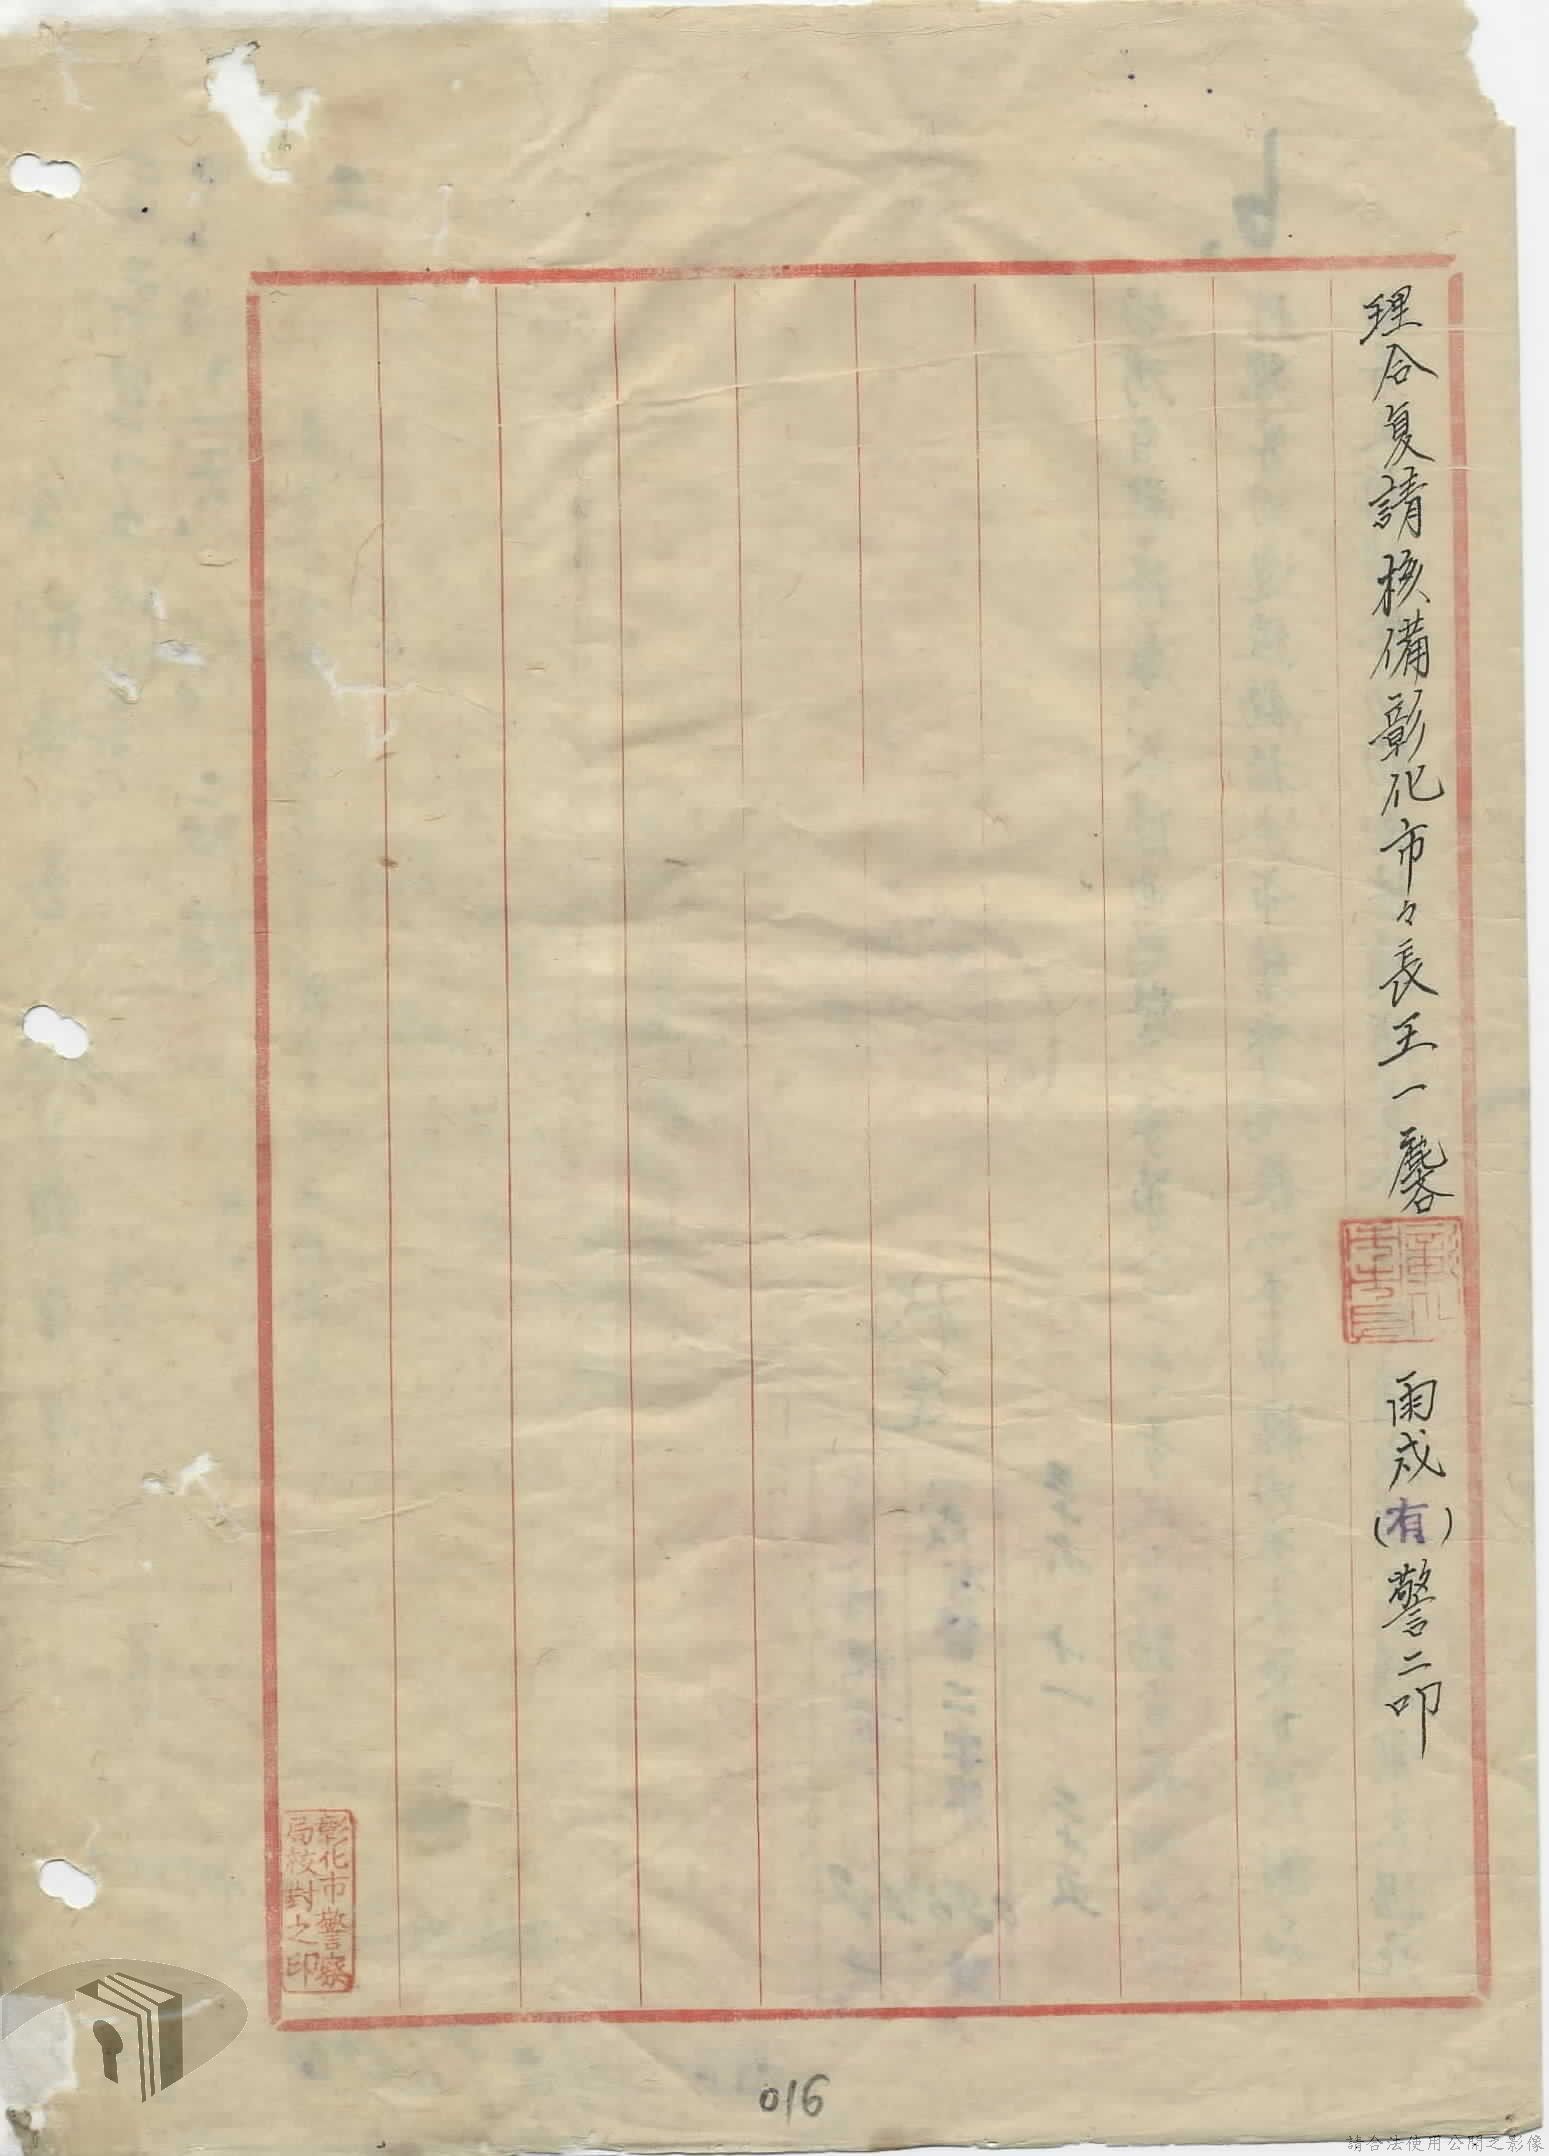 理合复請核備彰化市々長王一麐 雨戍(有)警二叩
彰化市警察
局校對之印
016
請合法使用公開之影像